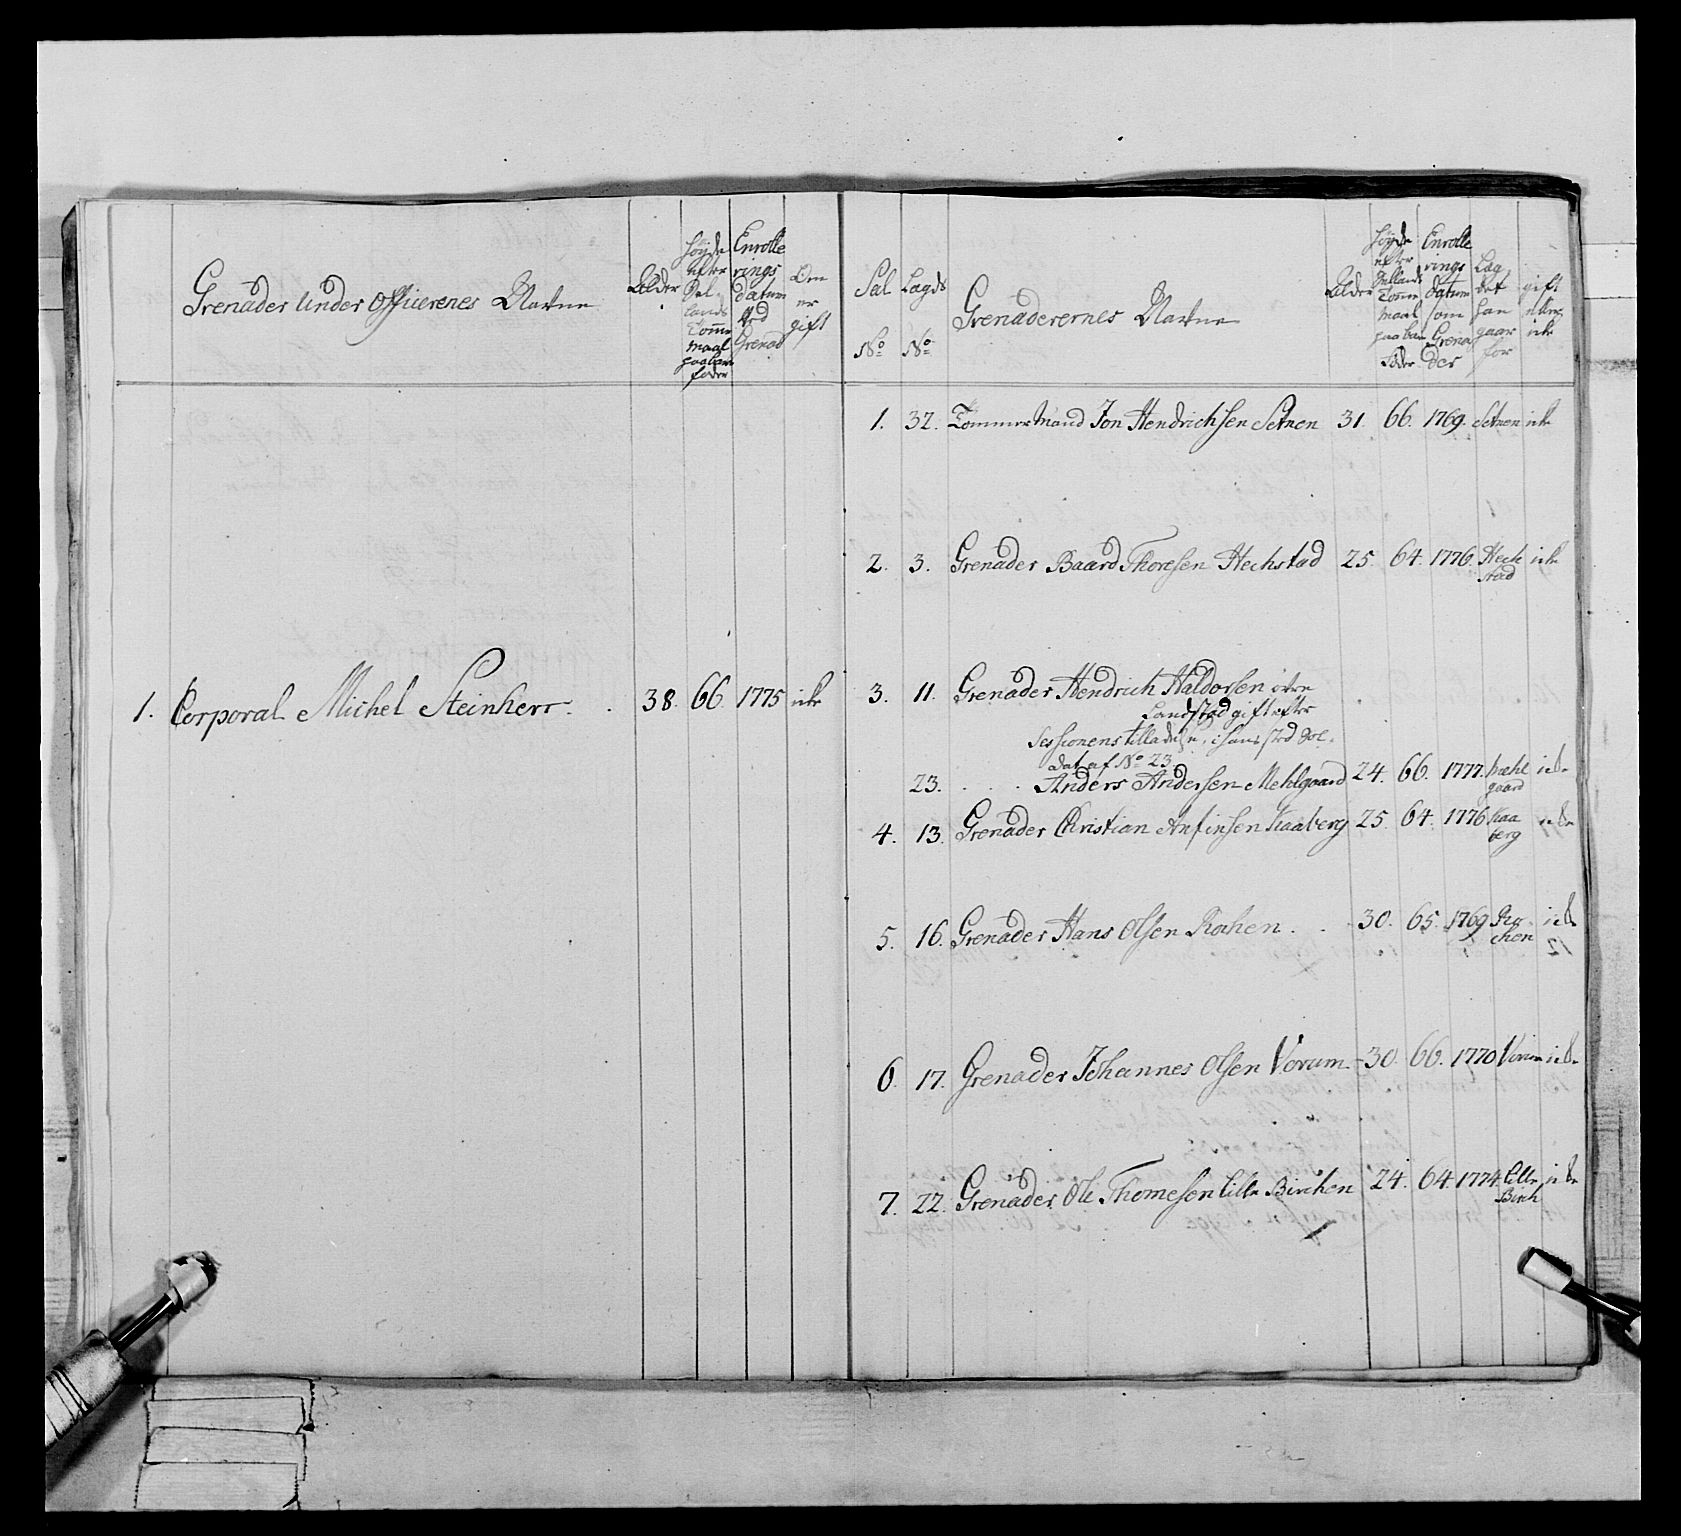 Grenader Under Officerenes Navne
Alder
Høyde efter Sællands Tomme maal paa bare føder
Enrolle rings datum ved Grenad
Om er gift
1. Corporal Michel Steinherr. . 38. 66. 1775 icke
Sal No
Lægds No
Grenaderernes Navne
Alder
Høyde efter Sællands Tomme maal paa bare føder
Enrolle rings datum som Grena der
Læg det han gaar for
gift eller icke
1. 32. Tømmermand Jon Hendrichsen Setnen 31. 66. 1769. Setnen icke
2. 3. Grenader Baard Thoresen Hechstad 25. 64. 1776. Hech icke
stad
3. 11. Grenader Hendrich Haldorsen øvre
Landstad gift efter
Sessionens tilladelse, i hans sted Sol-
dat af No 23
23. . . . Anders Andersen Mehlgaard 24. 66. 1777. Mehl icke
gaard
4. 13. Grenader Christian Anfinsen Kaaberg 25. 64. 1776 Kaa icke
berg
5. 16. Grenader Hans Olsen Rochen . . 30. 65. 1769 Ro- icke
chen
6. 17. Grenader Johannes Olsen Vorum 30. 66. 1770 Vorum icke
7. 22. Grenader Ole Thomesen Lille Birchen 24. 64. 1774. Lille icke
Birch